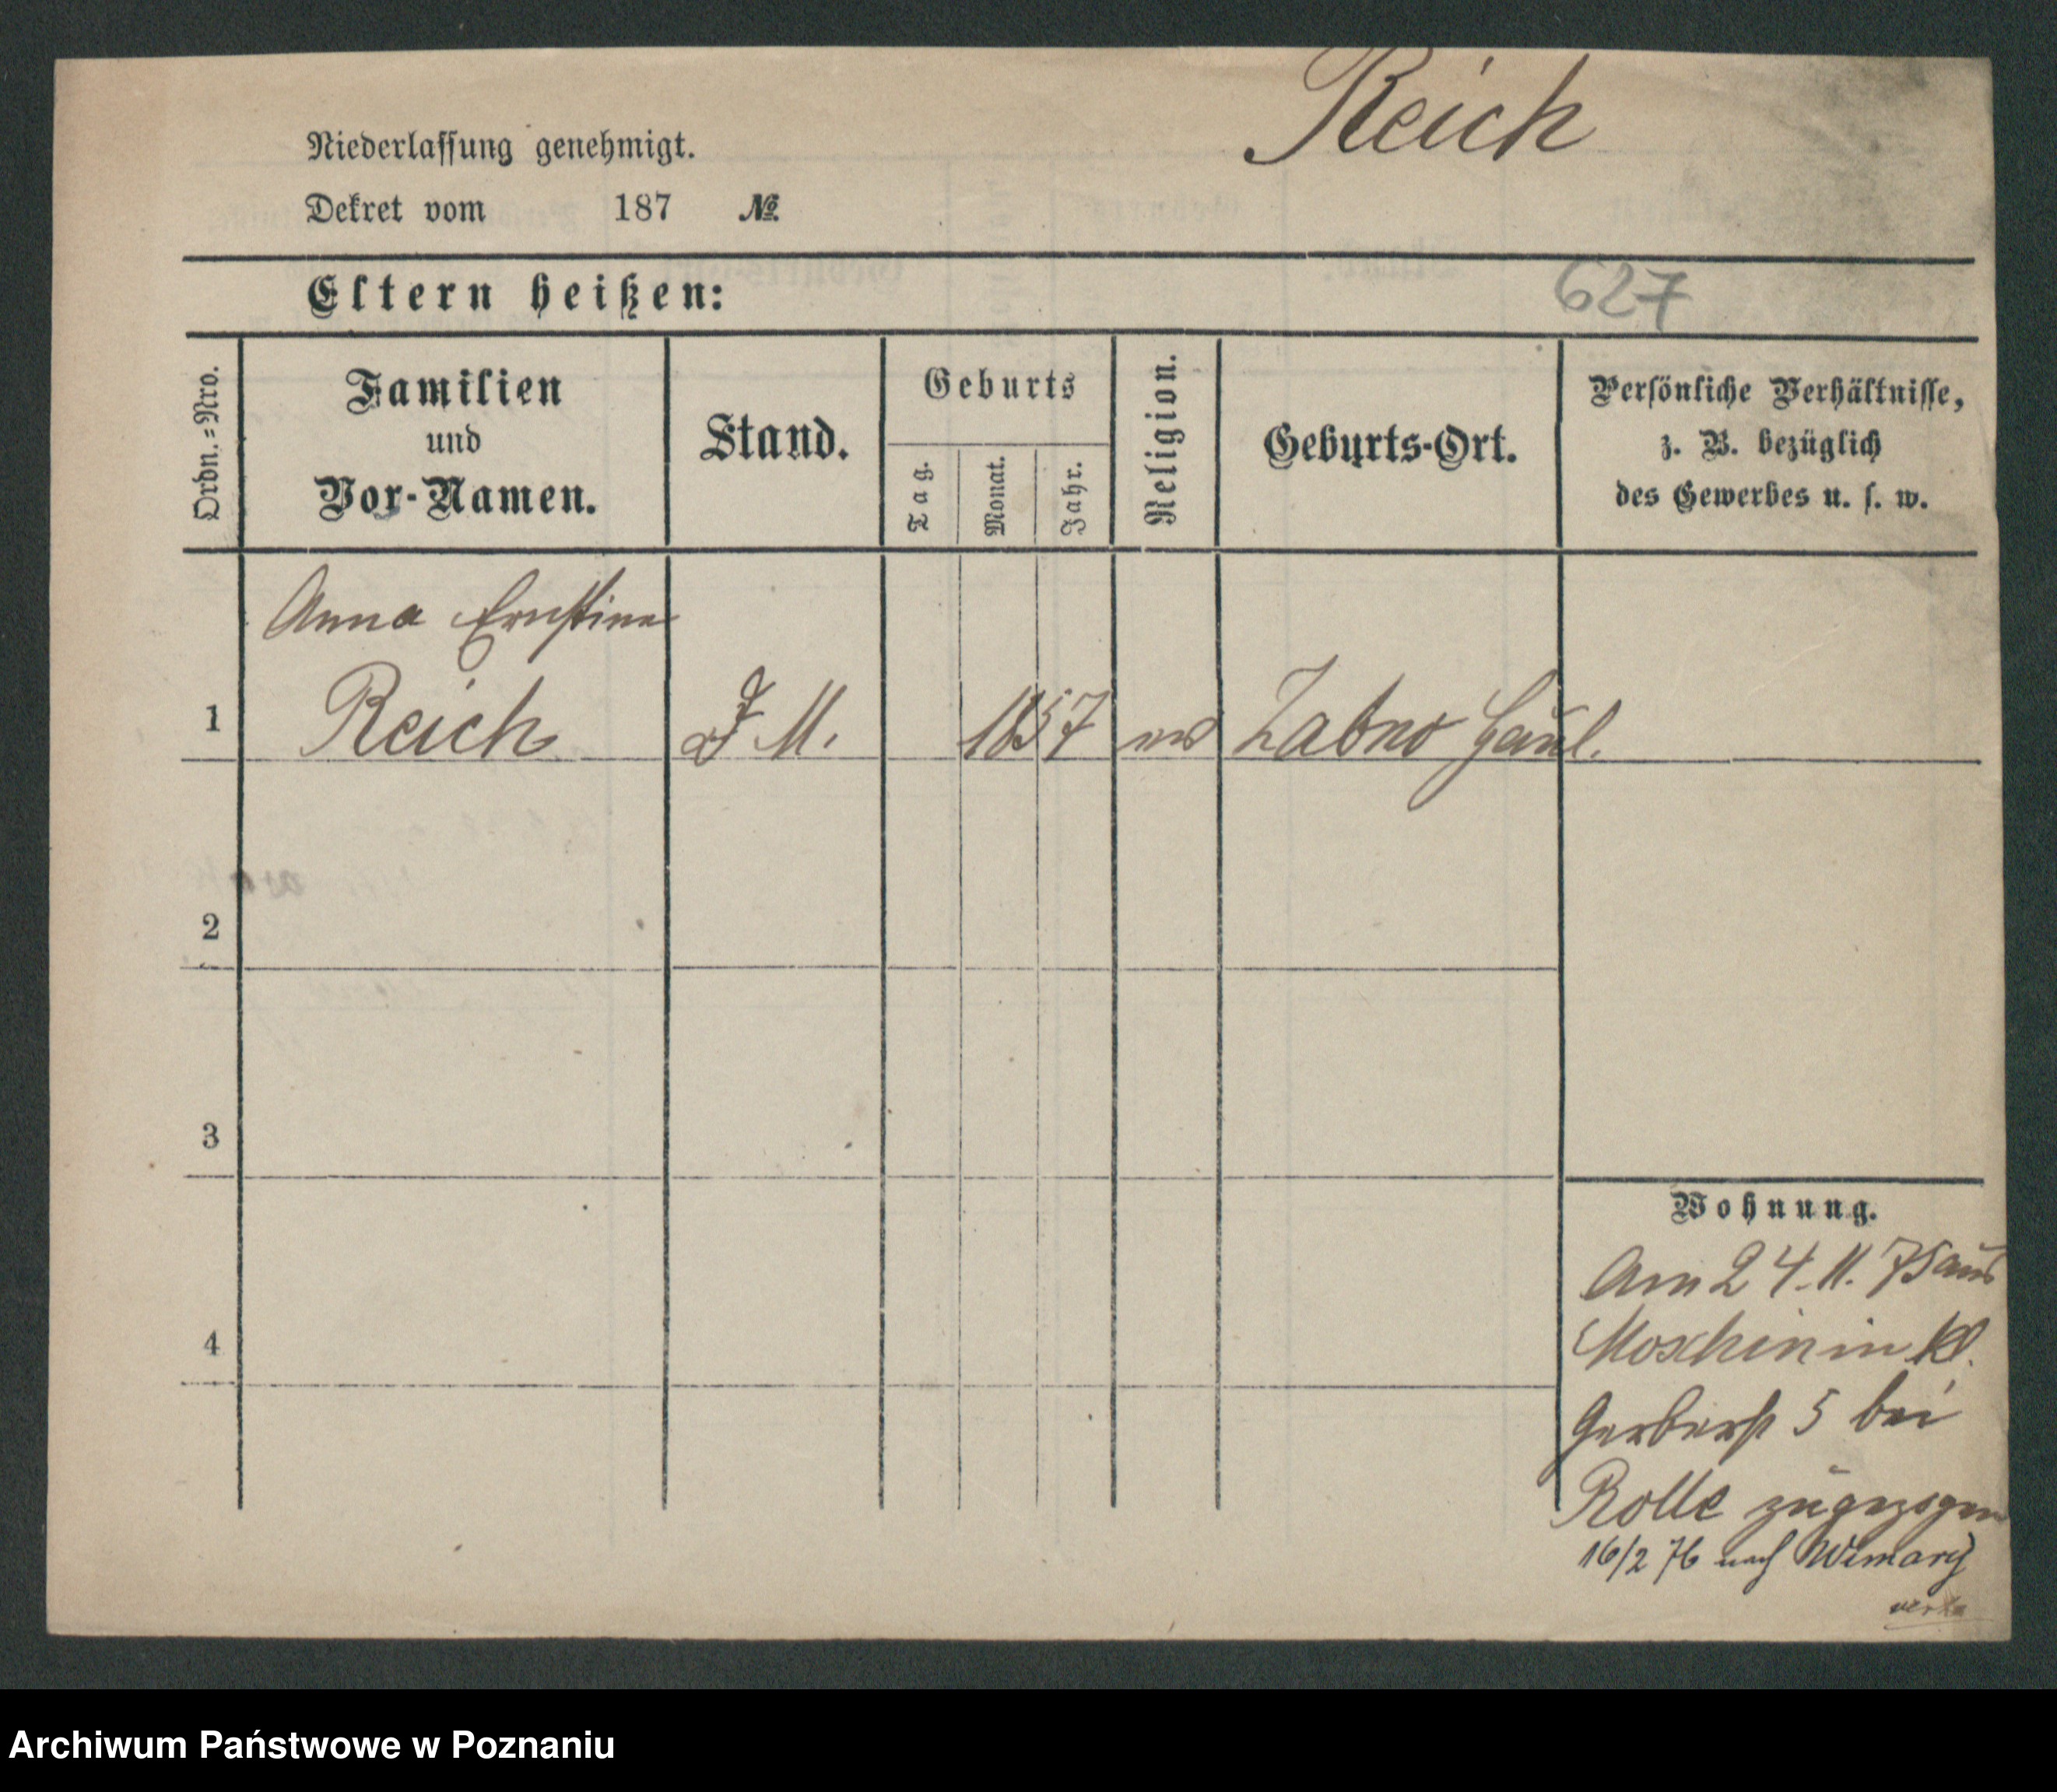 Reich
Niederlassung genehmigt.
Dekret vom 187 №
Eltern heißen:
627
Ordn.=Nro.
Familien
und
Vor-Namen.
Stand.
Geburts
Tag.
Monat.
Jahr.
Religion.
Geburts-Ort.
Persönliche Verhältnisse,
z. B. bezüglich
des Gewerbes u. s. w.
Anna Ernstine
1 Reich J M. 1857 Zabno
2
3
4
Wohnung.
Am 24.11.75 aus
Moschin in Kl.
Gerberst 5 bei
Rolle zugezogen
16/2 76 nach
Archiwum Państwowe w Poznaniu